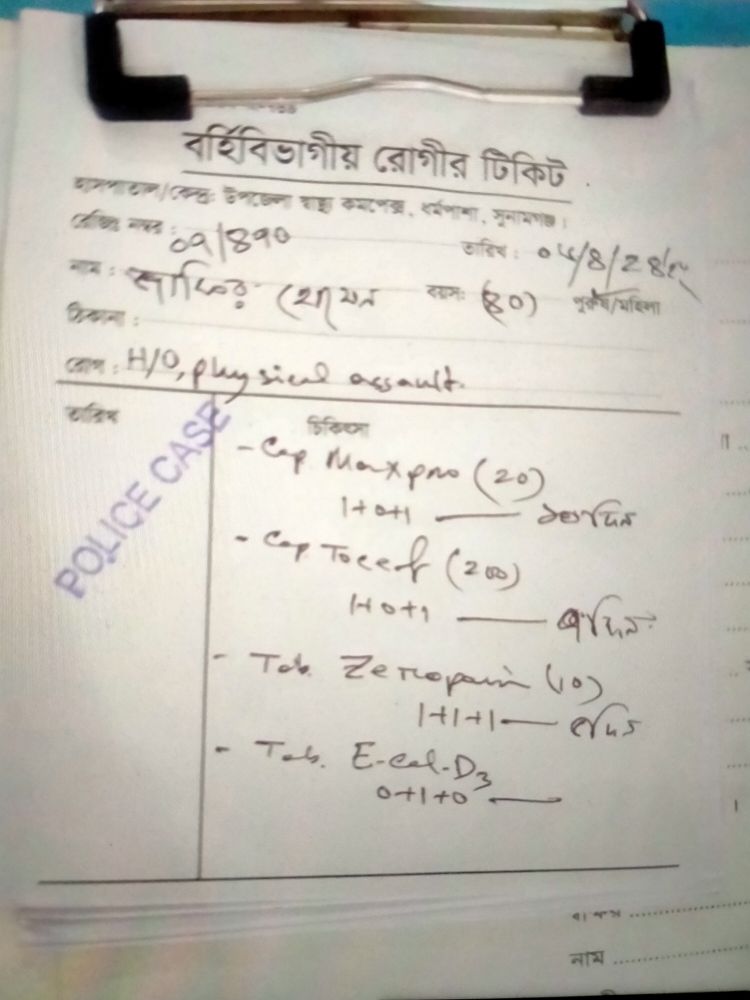 বর্হিবিভাগীয় রোগীর টিকিট
হাসপাতাল/কেন্দ্র: উপজেলা স্বাস্থ্য কমপ্লেক্স, ধর্মপাশা, সুনামগঞ্জ।
রেজিঃ নম্বর: ০৭/৪৭০ তারিখ:
নাম: বয়স: (৪০) পুরুষ/মহিলা
ঠিকানা:
রোগ: H/O, physical assault.
তারিখ
চিকিৎসা
POLICE CASE
- Cap Maxpro (20)
1+0+1 ——
- Cap Tocef (200)
1+0+1 —— ৭দিন
- Tab. Zeropain (10)
1+1+1 —— ৫দিন
- Tab. E-cal-D3
0+1+0 ——
নাম